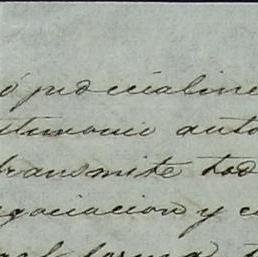 ó judicialme
stimonio auto
transmite tod
egociacion y c
forma